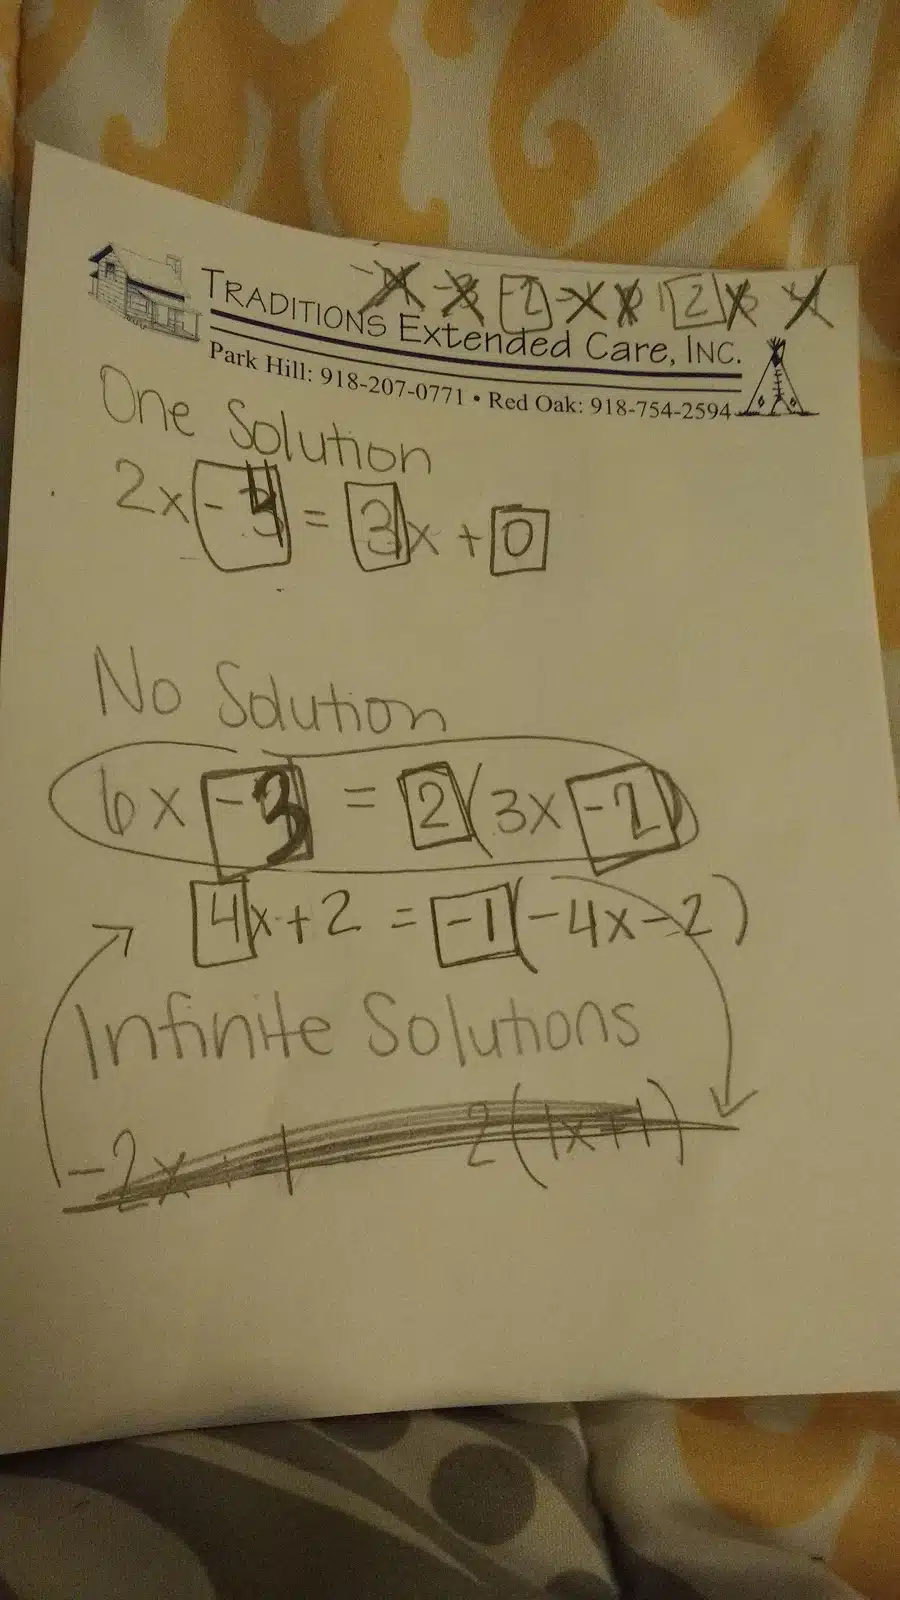 -2 -1 2
TRADITIONS Extended Care, INC.
Park Hill: 918-207-0771 • Red Oak: 918-754-2594
One Solution
2x -4 = 3x + 0
No Solution
6x -3 = 2(3x -2)
4x + 2 = -1(-4x - 2)
Infinite Solutions
-2x + 1 2(1x+1)